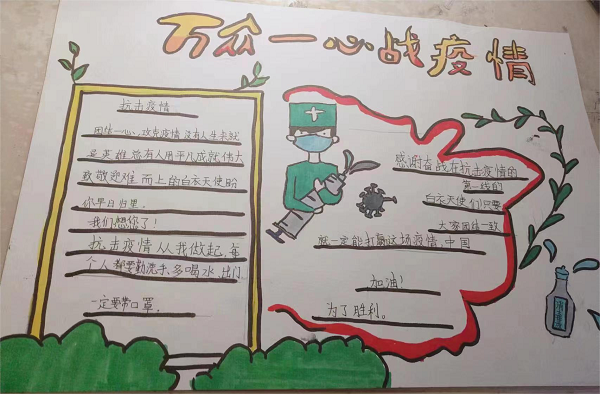 万众一心战疫情
抗击疫情
团结一心,攻克疫情没有人生来就
是英雄总有人用平凡成就伟大
致敬迎难而上的白衣天使盼
你平日归里。
我们想您了!
抗击疫情从我做起,每
个人都要勤洗手,多喝水,出门
一定要带口罩。
感谢奋战在抗击疫情的
第一线的
白衣天使们只要
大家团结一致
就一定能打赢这场疫情,中国
加油!
为了胜利。